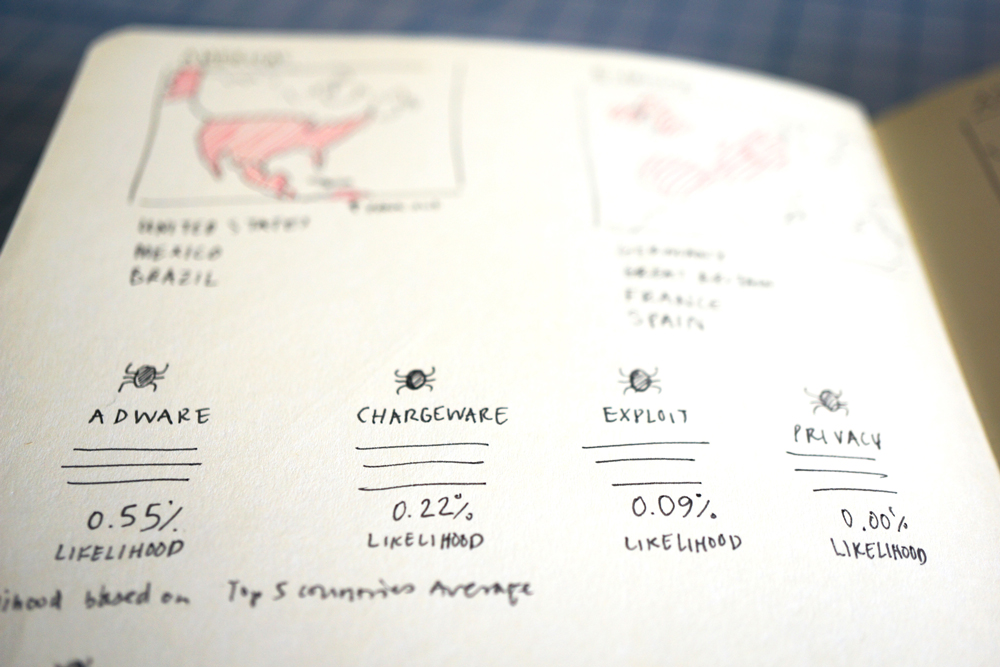 UNITED STATES
MEXICO
BRAZIL
GERMANY
GREAT BRITAIN
FRANCE
SPAIN
ADWARE
0.55%
LIKELIHOOD
CHARGEWARE
0.22%
LIKELIHOOD
EXPLOIT
0.09%
LIKELIHOOD
PRIVACY
0.00%
LIKELIHOOD
lihood based on Top 5 countries Average